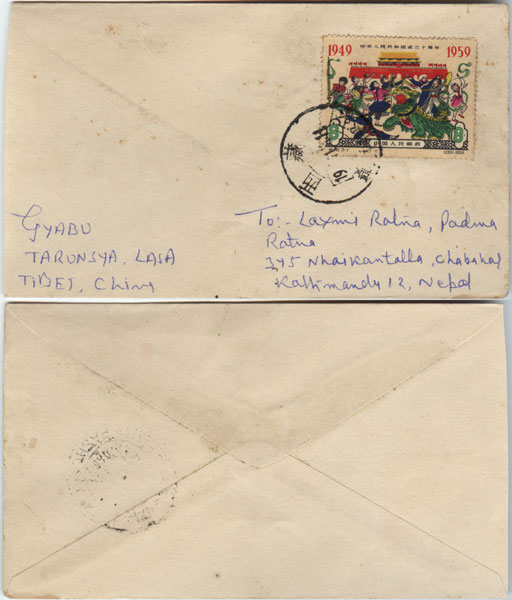 1949 中华人民共和国成立十周年 1959
8 中国人民邮政 8
西藏
GYABU
TARUNSYA, LASA
TIBET, China
To:- Laxmi Ratna, Padma
Ratna
345 Nhaikantalla, Chabahal
Kathmandu 12, Nepal